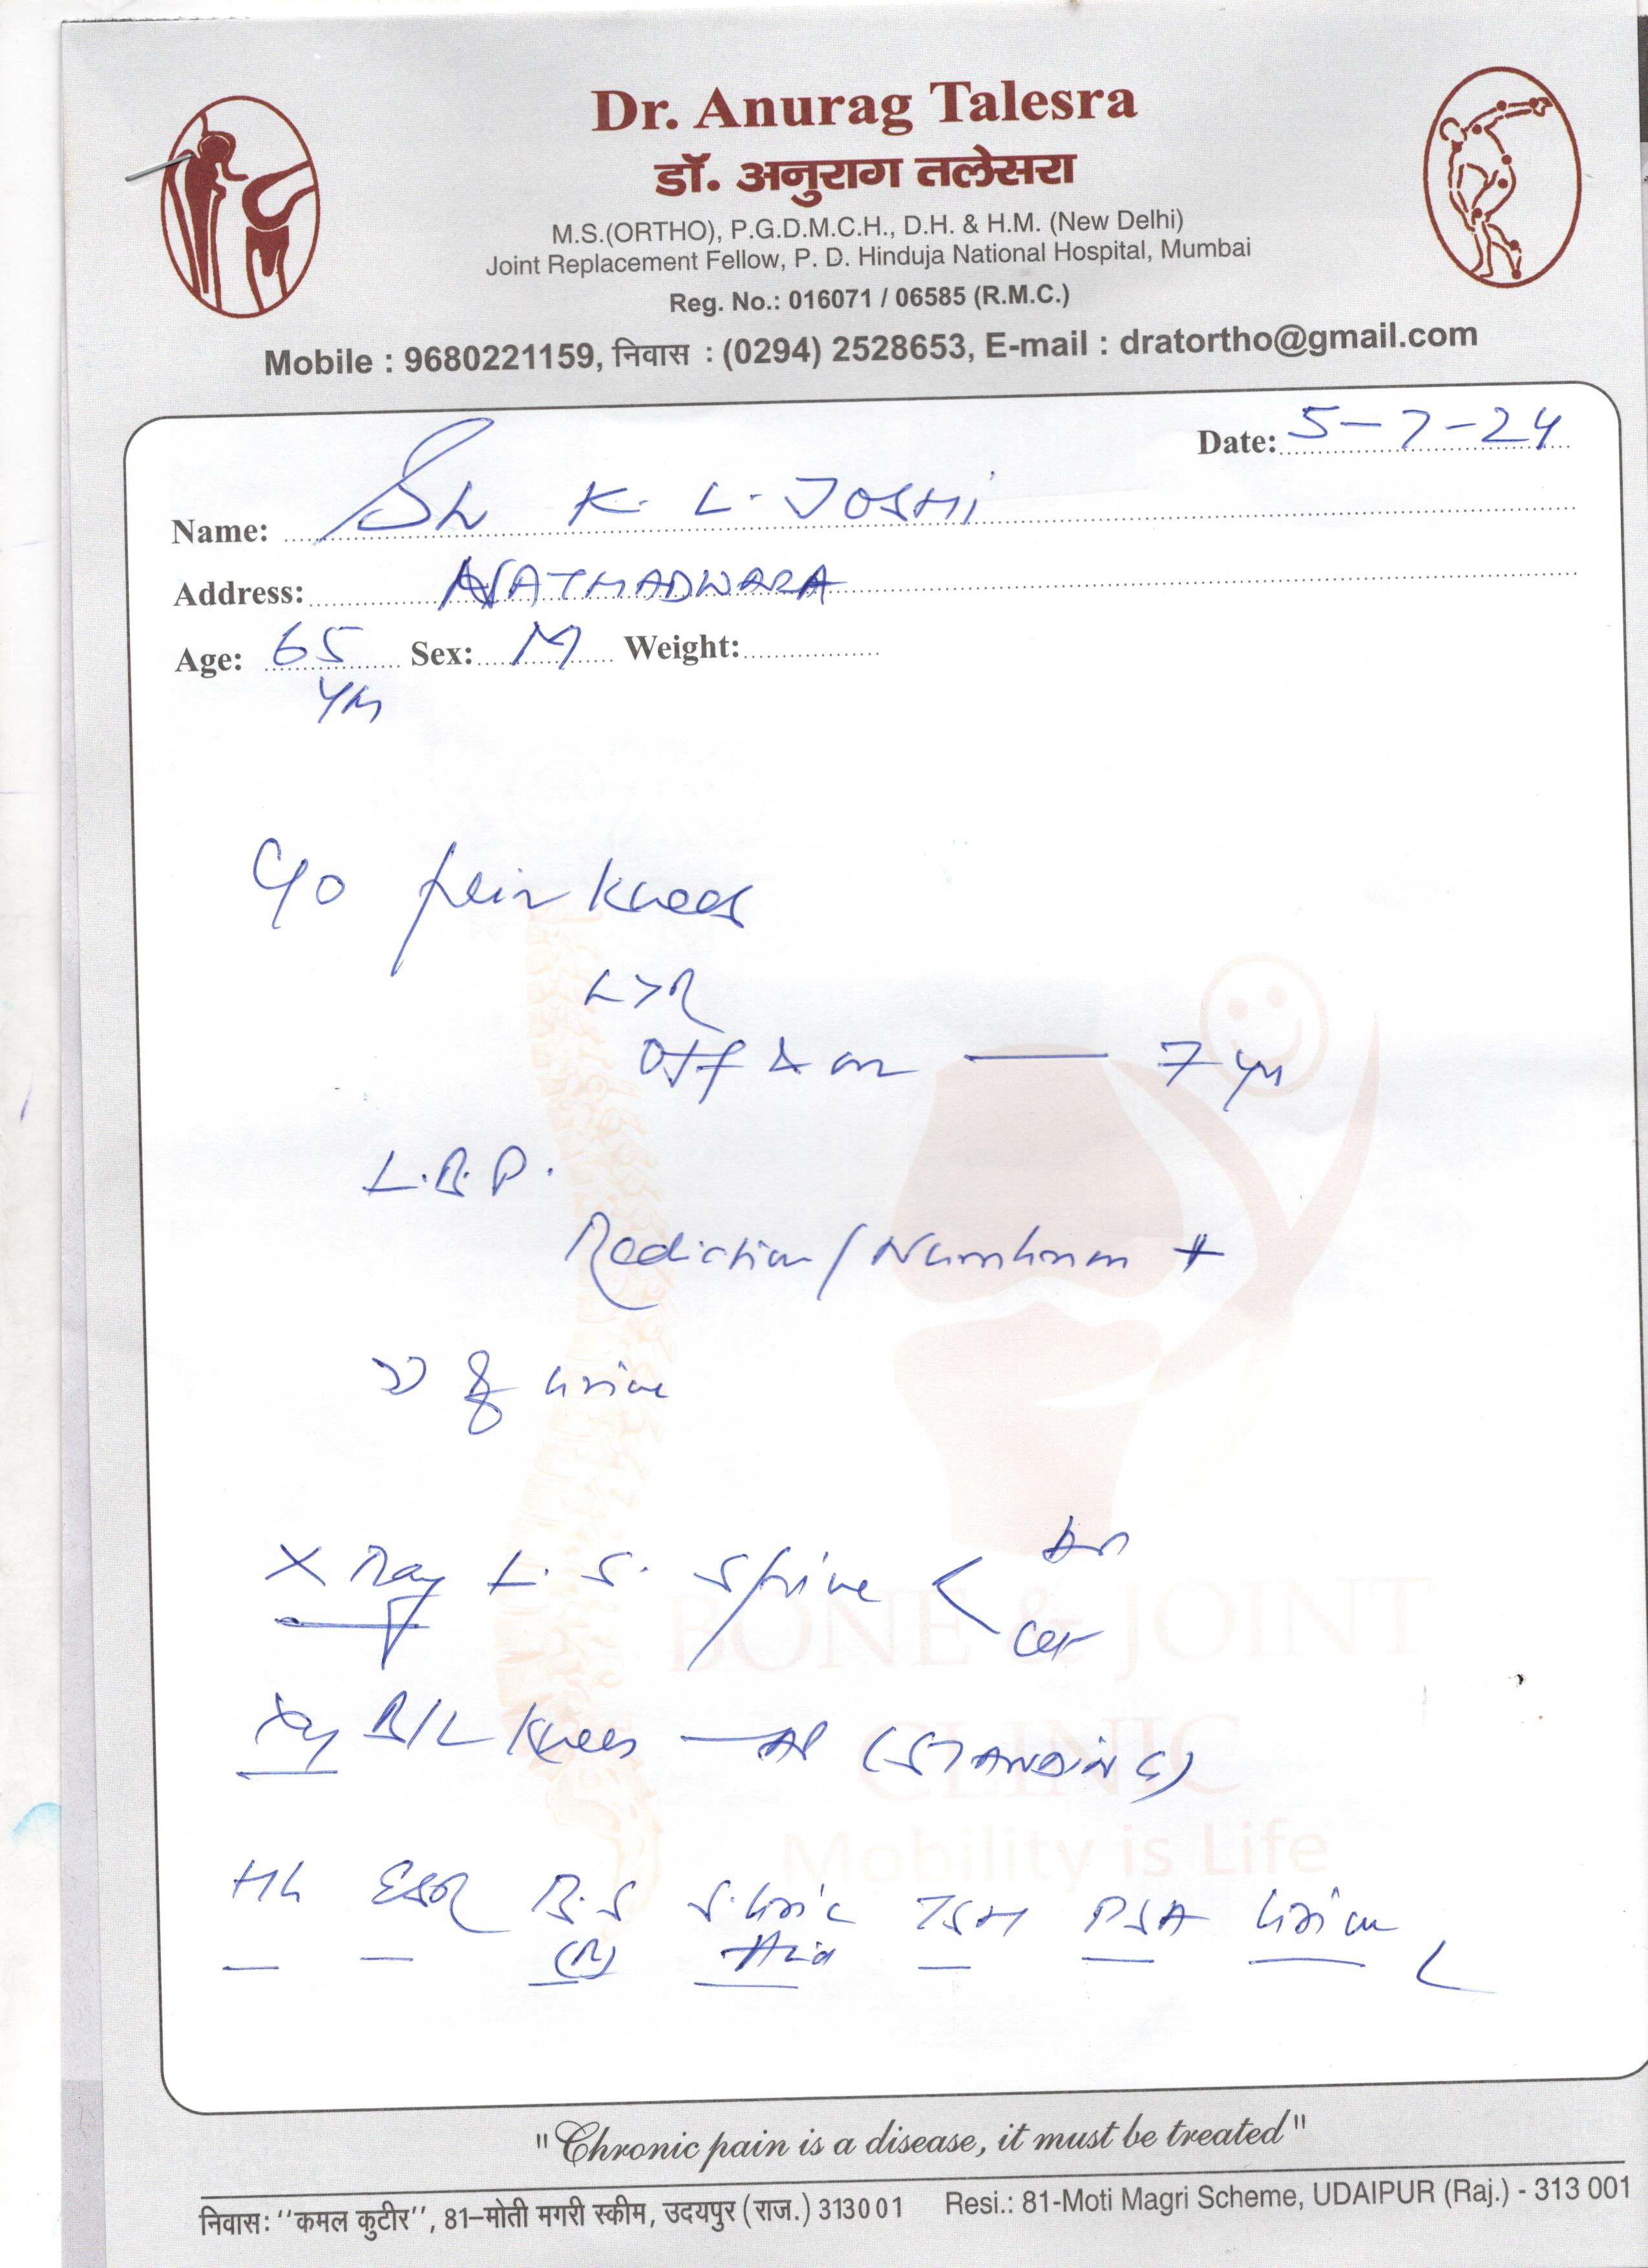 Dr. Anurag Talesra
डॉ. अनुराग तलेसरा
M.S.(ORTHO), P.G.D.M.C.H., D.H. & H.M. (New Delhi)
Joint Replacement Fellow, P. D. Hinduja National Hospital, Mumbai
Reg. No.: 016071 / 06585 (R.M.C.)
Mobile : 9680221159, निवास : (0294) 2528653, E-mail : dratortho@gmail.com
Date: 5-7-24
Name: Sh K. L. JOSHI
Address: NATHADWARA
Age: 65 Sex: M Weight:
yrs
C/o pain knees
L>R
Off & on — 7 yrs
L.B.P.
Radiation / Numbness +
urine
X Ray L. S. Spine <
Lat
Xray B/L Knees — AP (STANDING)
Hb ESR B.S S. Uric TSH PSA Urine
(R) Acid
BONE & JOINT
CLINIC
Mobility is Life
"Chronic pain is a disease, it must be treated"
निवास: ''कमल कुटीर'', 81–मोती मगरी स्कीम, उदयपुर (राज.) 313001 Resi.: 81-Moti Magri Scheme, UDAIPUR (Raj.) - 313 001